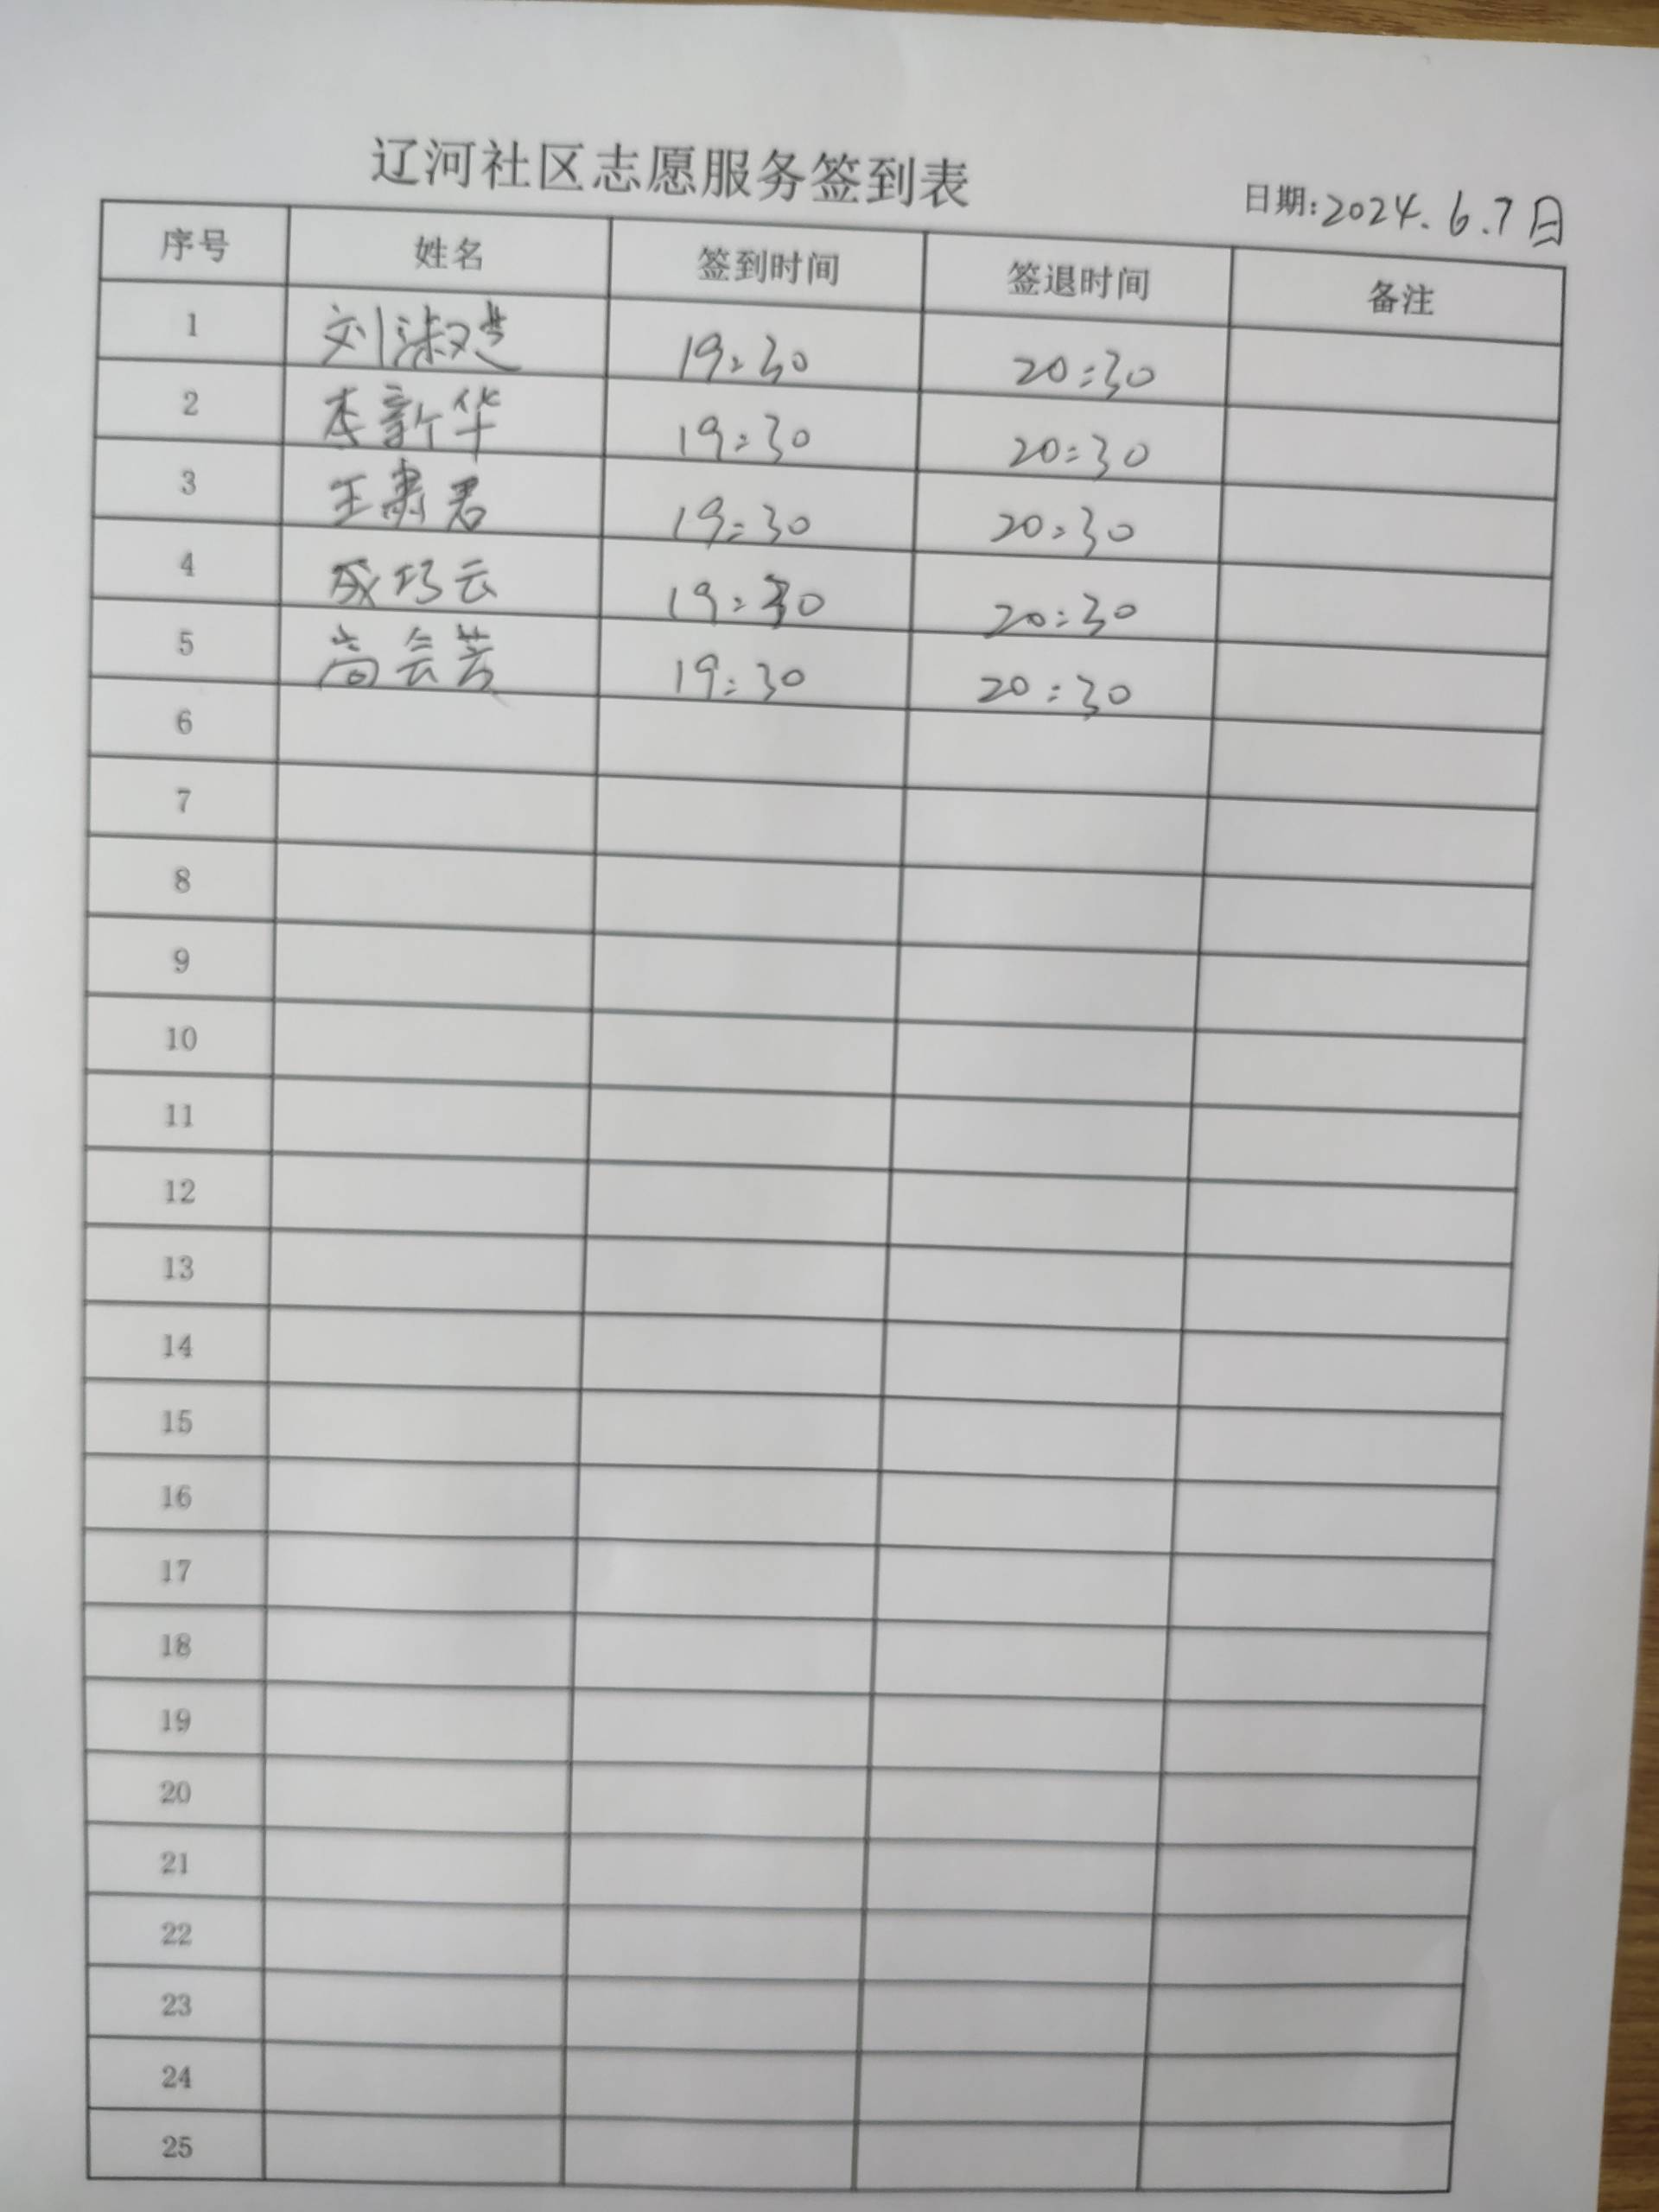 辽河社区志愿服务签到表
日期:2024.6.7日
序号 姓名 签到时间 签退时间 备注
1 刘淑 19:30 20:30
2 李新华 19:30 20:30
3 王肃君 19:30 20:30
4 成巧云 19:30 20:30
5 尚会芳 19:30 20:30
6
7
8
9
10
11
12
13
14
15
16
17
18
19
20
21
22
23
24
25